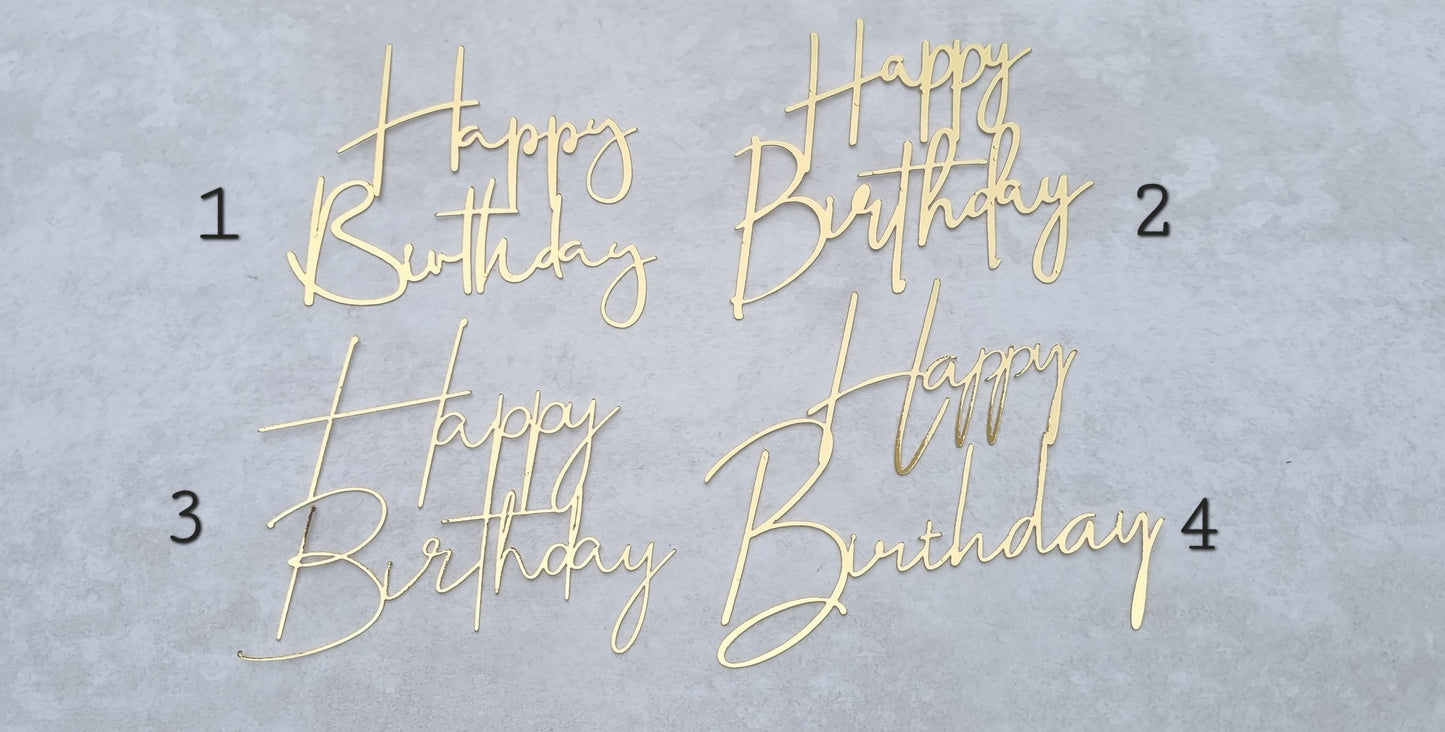 Happy
Birthday
1
Happy
Birthday
2
Happy
Birthday
3
Happy
Birthday
4